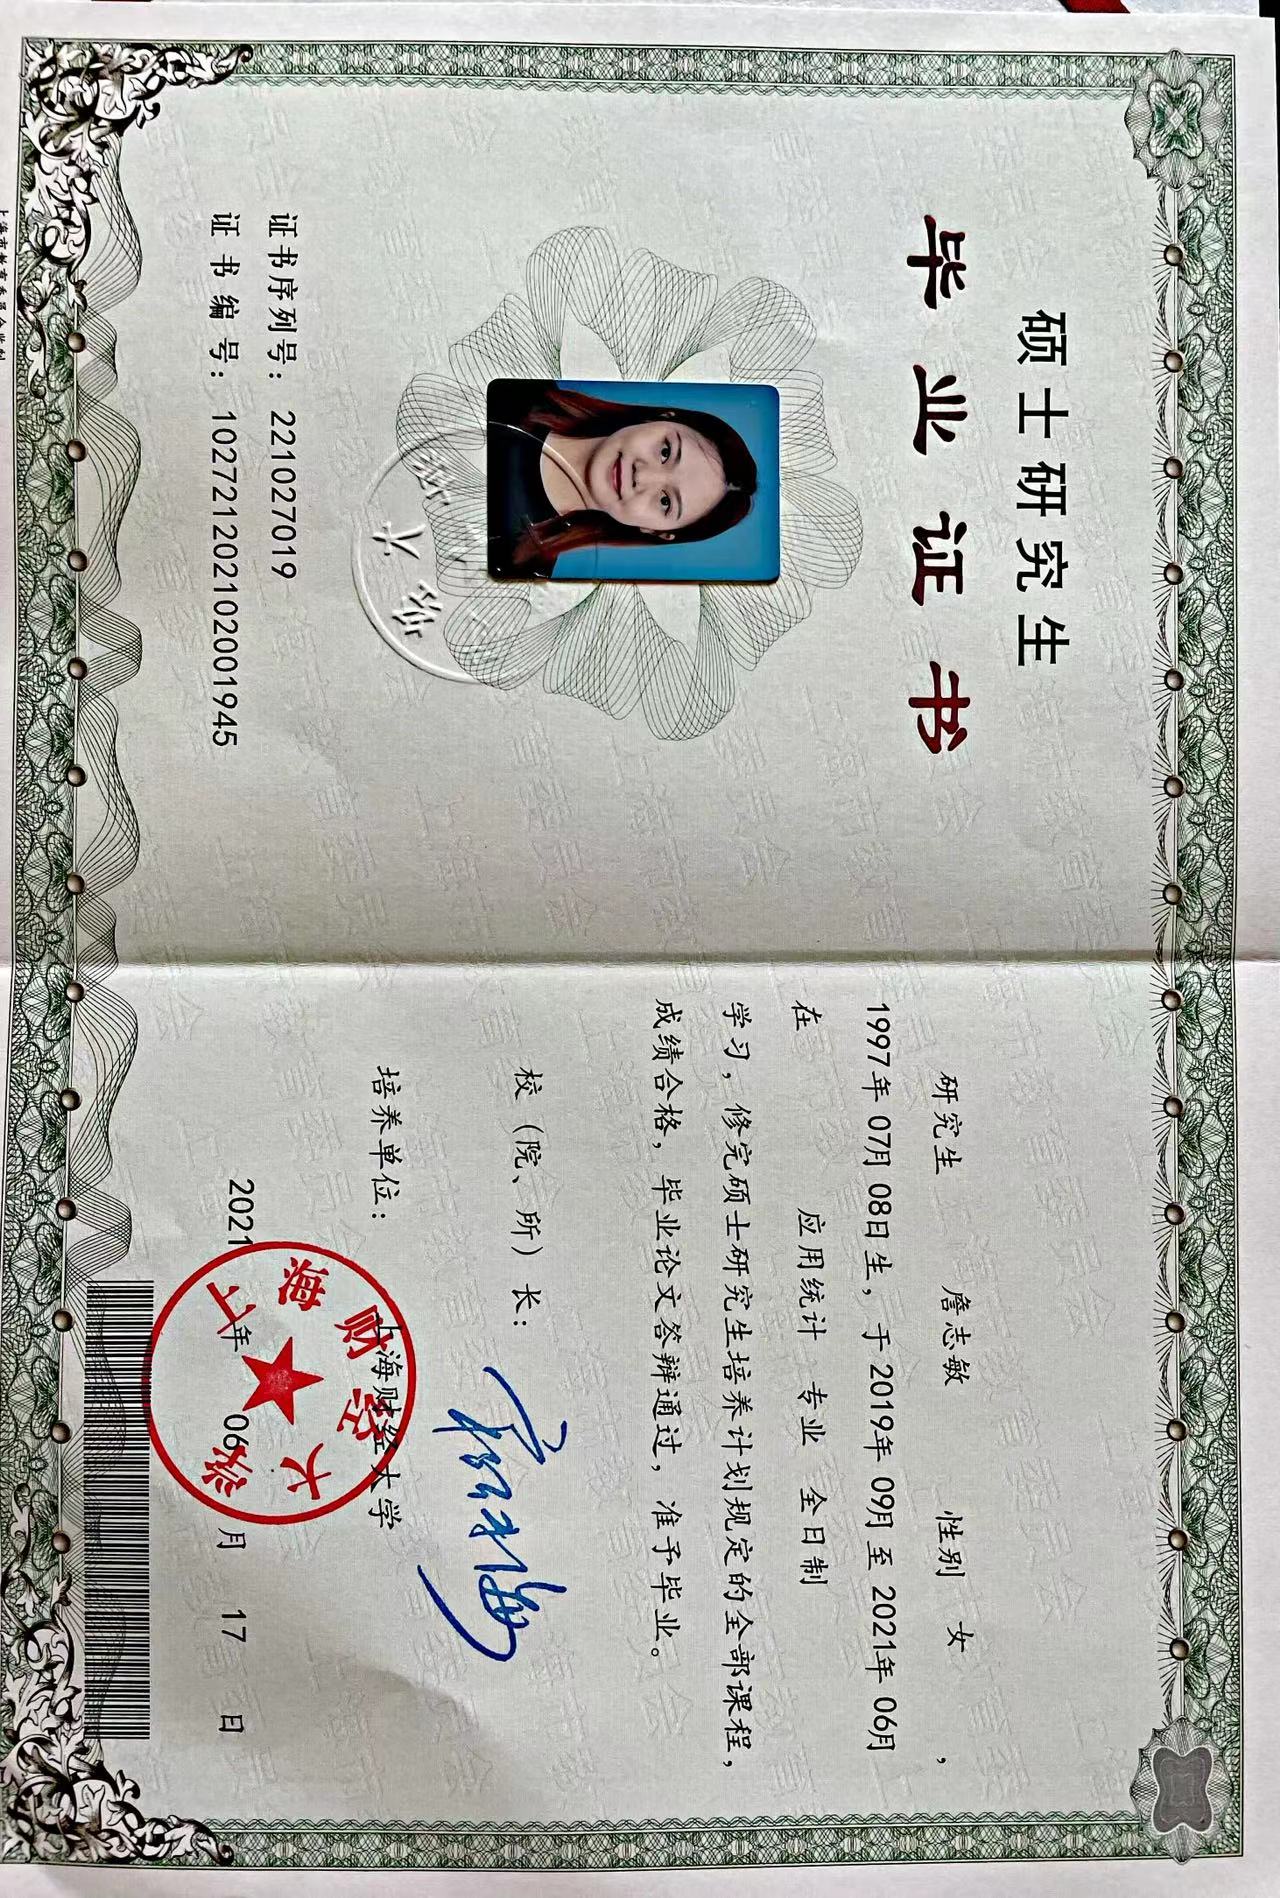 硕士研究生
毕业证书
证书序列号：221027019
证书编号：102721202102001945
上海市教育委员会监制
研究生 詹志敏 性别 女 ，
1997年 07月 08日生，于 2019年 09月 至 2021年 06月
在 应用统计 专业 全日制
学习，修完硕士研究生培养计划规定的全部课程，
成绩合格，毕业论文答辩通过，准予毕业。
校（院、所）长：
培养单位： 上海财经大学
2021 年 06 月 17 日
上海财经大学